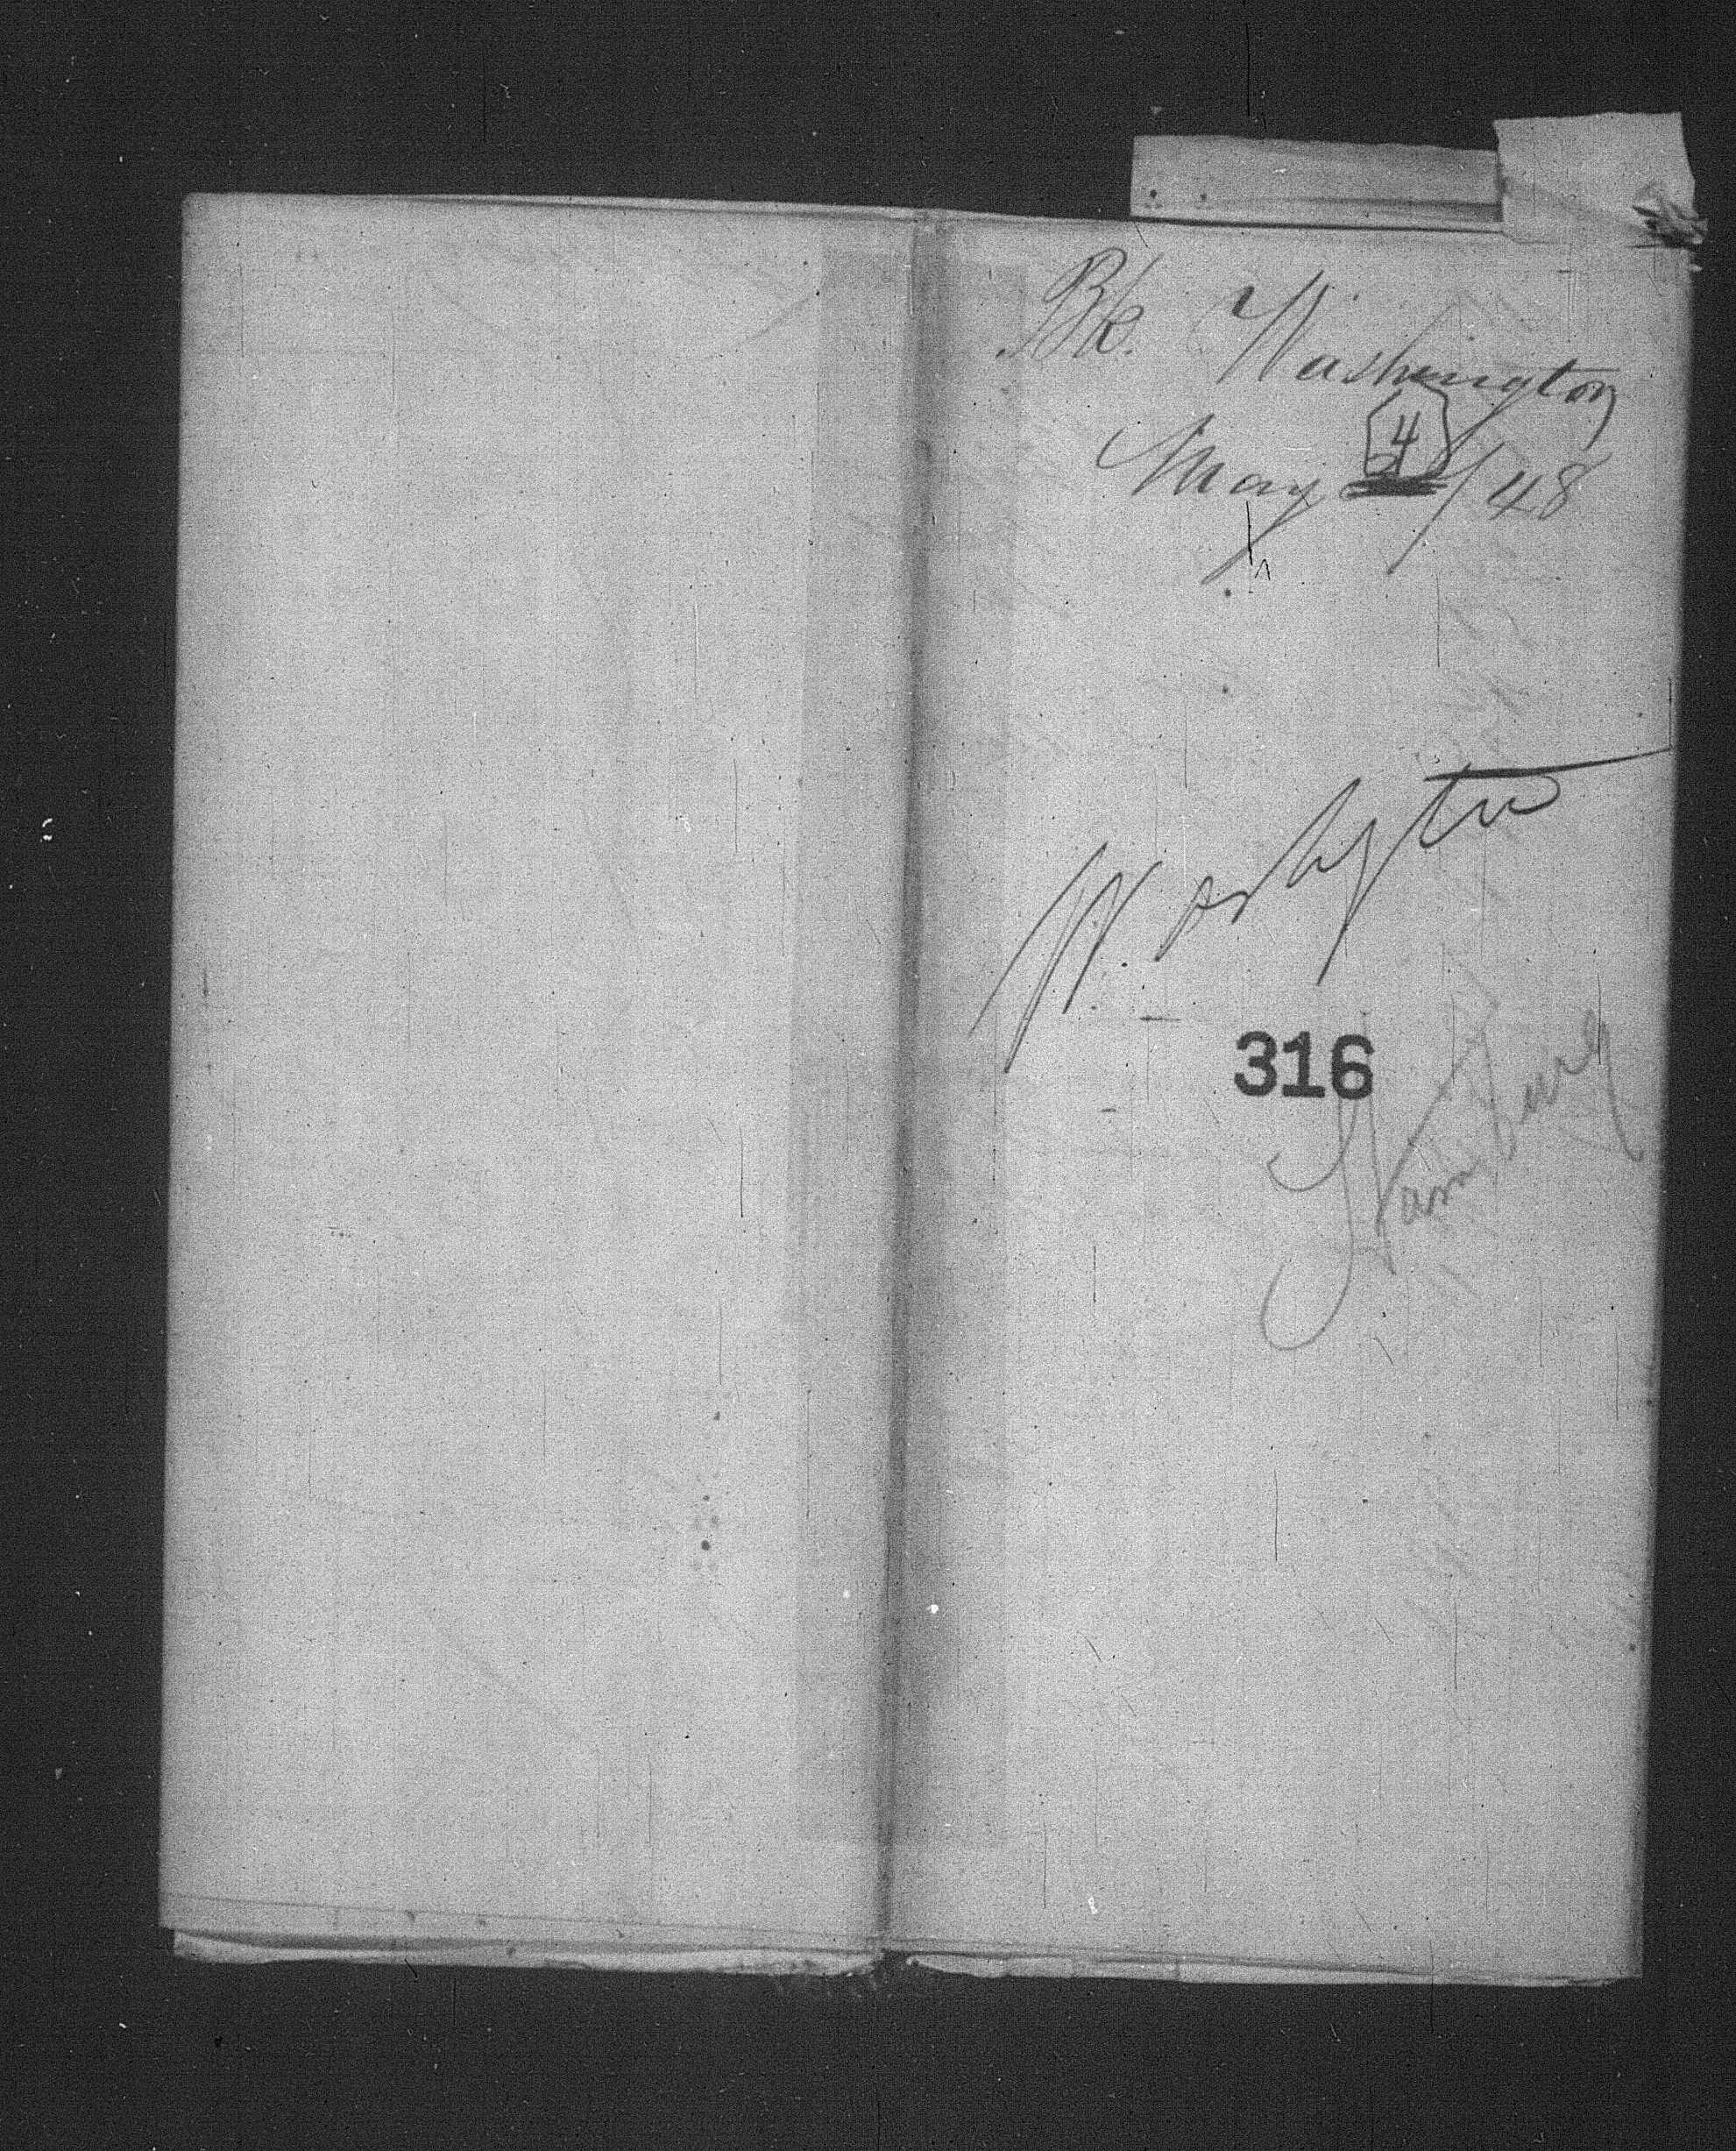 Bk. Washington
May 4/48
Washgtn
316
Hamburg